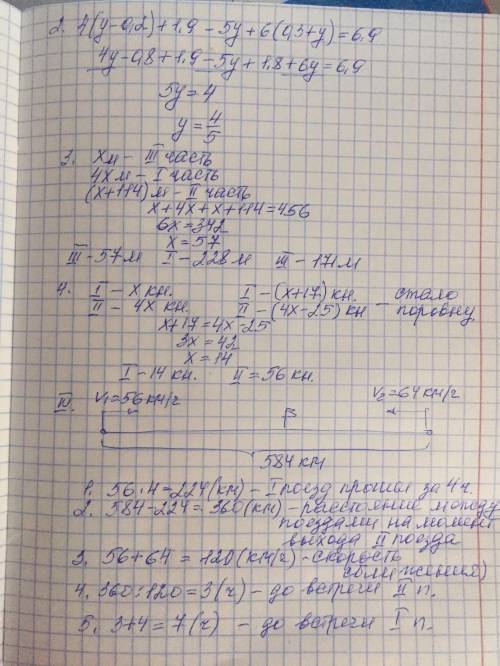 2. 4(y-0,2)+1,9 - 5y + 6(0,3+y)=6,9
4y-0,8+1,9-5y+1,8+6y=6,9
5y=4
y=4/5
3. xм - III часть
4xм - I часть
(x+114)м - II часть
x+4x+x+114=456
6x=342
x=57
III-57м I-228м III-171м
4. I - x кн. I-(x+17) кн. - стало
II - 4x кн. II-(4x-25) кн поровну
x+17=4x-25
3x=42
x=14
I-14 кн. II=56 кн.
IV. V₁=56 км/ч V₂=64 км/ч
584 км
1. 56·4=224(км) - I поезд прошел за 4ч.
2. 584-224=360(км)-расстояние между
поездами на момент
выхода II поезда
3. 56+64=120(км/ч)-скорость
сближения)
4. 360:120=3(ч) - до встречи II п.
5. 3+4=7(ч) - до встречи I п.